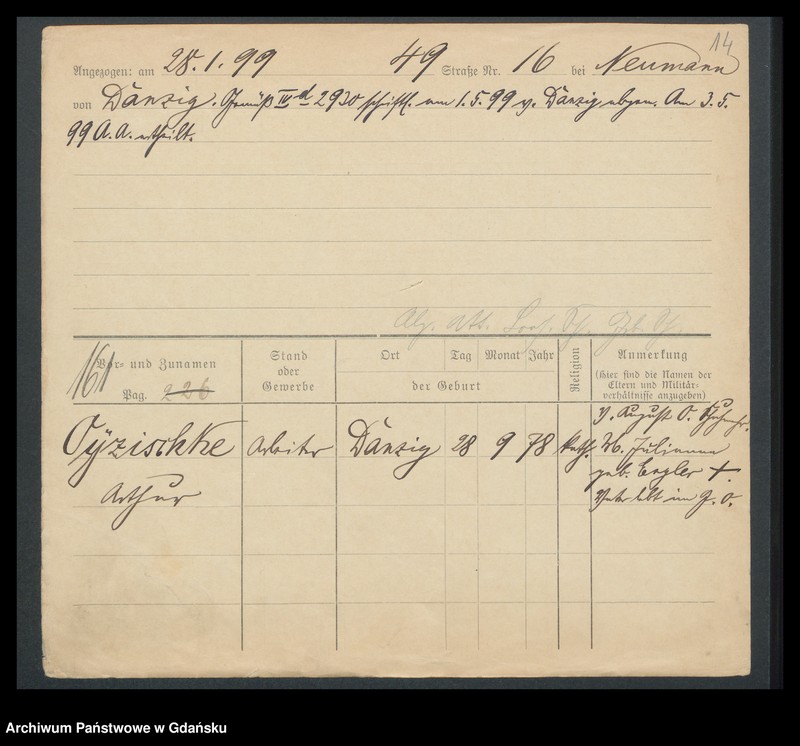 14
Angezogen: am 28.1.99 49 Straße Nr. 16 bei Neumann
von Danzig. Gemäß IV d 2930 schriftl. am 1.5.99 v. Danzig abgem. Am 3.5.
99 A. A. ertheilt.
161
Vor- und Zunamen
Pag. 226
Stand
oder
Gewerbe
Ort Tag Monat Jahr
der Geburt
Religion
Anmerkung
(Hier sind die Namen der
Eltern und Militär-
verhältnisse anzugeben)
Cÿzischke Arbeiter Danzig 28 9 78 kath.
Arthur
V. August O.
M. Julianna
geb. Engler +.
Vater lebt im J. O.
Archiwum Państwowe w Gdańsku